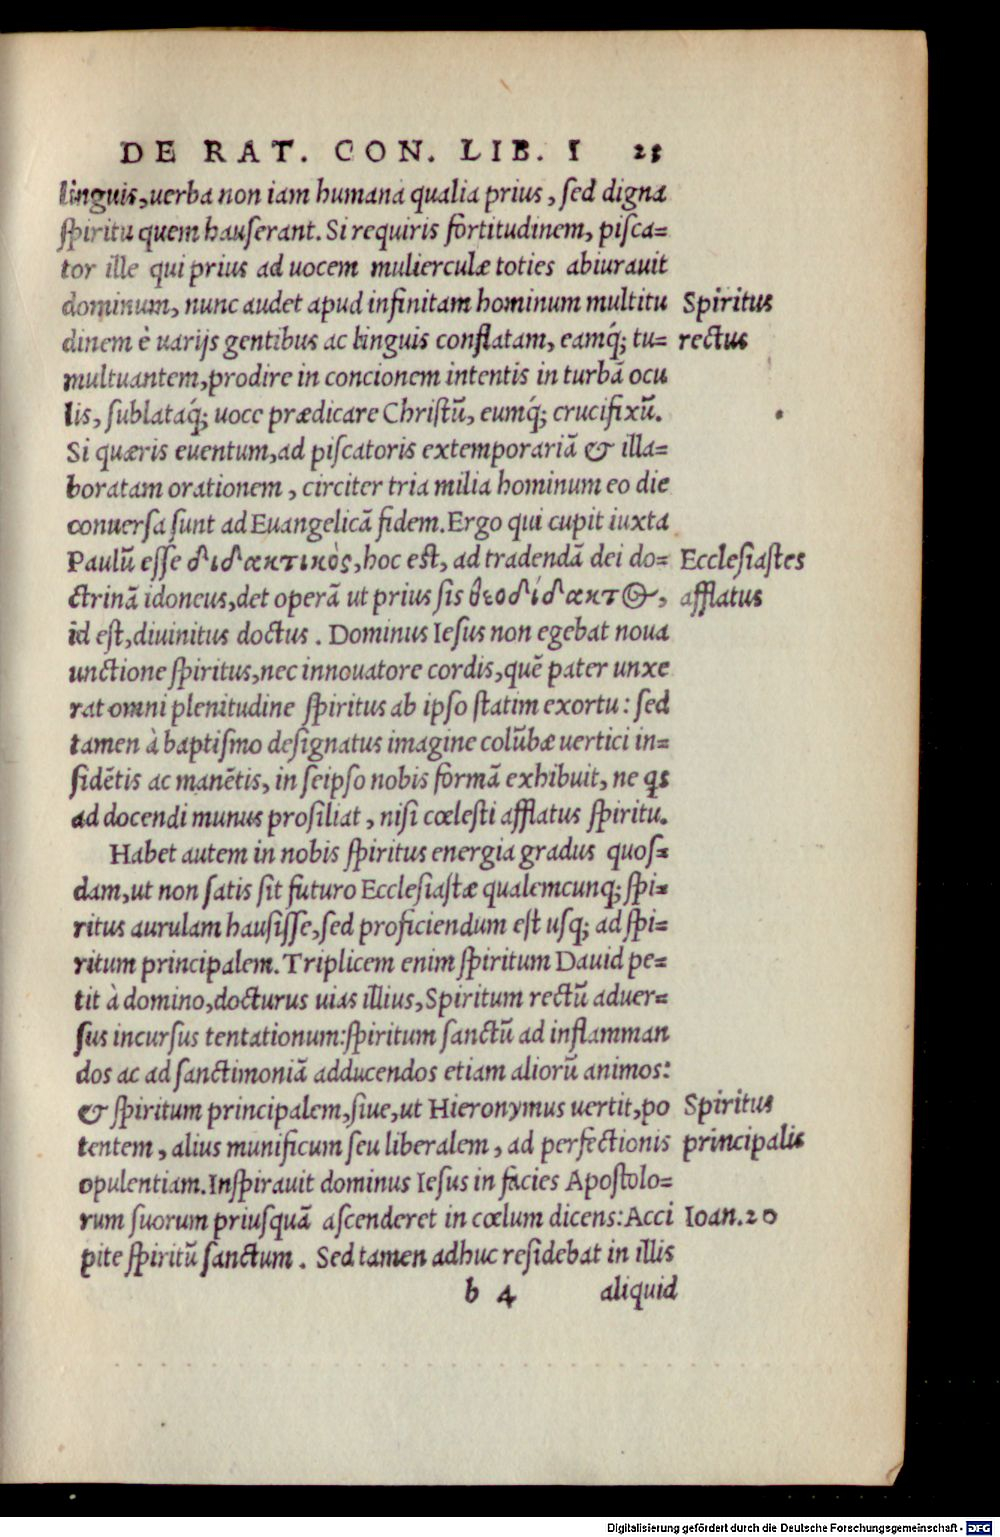 DE RAT. CON. LIB. I 23
linguis, uerba non iam humana qualia prius, sed digna
spiritu quem hauserant. Si requiris fortitudinem, pisca=
tor ille qui prius ad uocem mulierculæ toties abiurauit
dominum, nunc audet apud infinitam hominum multitu
Spiritus
dinem è uarijs gentibus ac linguis conflatam, eamq́; tu=
rectus
multuantem, prodire in concionem intentis in turbā ocu
lis, sublataq́; uoce prædicare Christū, eumq́; crucifixū.
Si quæris euentum, ad piscatoris extemporariā & illa=
boratam orationem, circiter tria milia hominum eo die
conuersa sunt ad Euangelicā fidem. Ergo qui cupit iuxta
Paulū esse διδακτικὸς, hoc est, ad tradendā dei do=
Ecclesiastes
ctrinā idoneus, det operā ut prius sis θεοδίδακτος,
afflatus
id est, diuinitus doctus. Dominus Iesus non egebat noua
unctione spiritus, nec innouatore cordis, quē pater unxe
rat omni plenitudine spiritus ab ipso statim exortu: sed
tamen à baptismo designatus imagine colūbæ uertici in=
sidētis ac manētis, in seipso nobis formā exhibuit, ne qs
ad docendi munus prosiliat, nisi cœlesti afflatus spiritu.
Habet autem in nobis spiritus energia gradus quos=
dam, ut non satis sit futuro Ecclesiastæ qualemcunq; spi=
ritus aurulam hausisse, sed proficiendum est usq; ad spi=
ritum principalem. Triplicem enim spiritum Dauid pe=
tit à domino, docturus uias illius, Spiritum rectū aduer=
sus incursus tentationum: spiritum sanctū ad inflamman
dos ac ad sanctimoniā adducendos etiam aliorū animos:
& spiritum principalem, siue, ut Hieronymus uertit, po
Spiritus
tentem, alius munificum seu liberalem, ad perfectionis
principalis
opulentiam. Inspirauit dominus Iesus in facies Apostolo=
rum suorum priusquā ascenderet in cœlum dicens: Acci
Ioan. 20
pite spiritū sanctum. Sed tamen adhuc residebat in illis
b 4 aliquid
Digitalisierung gefördert durch die Deutsche Forschungsgemeinschaft - DFG